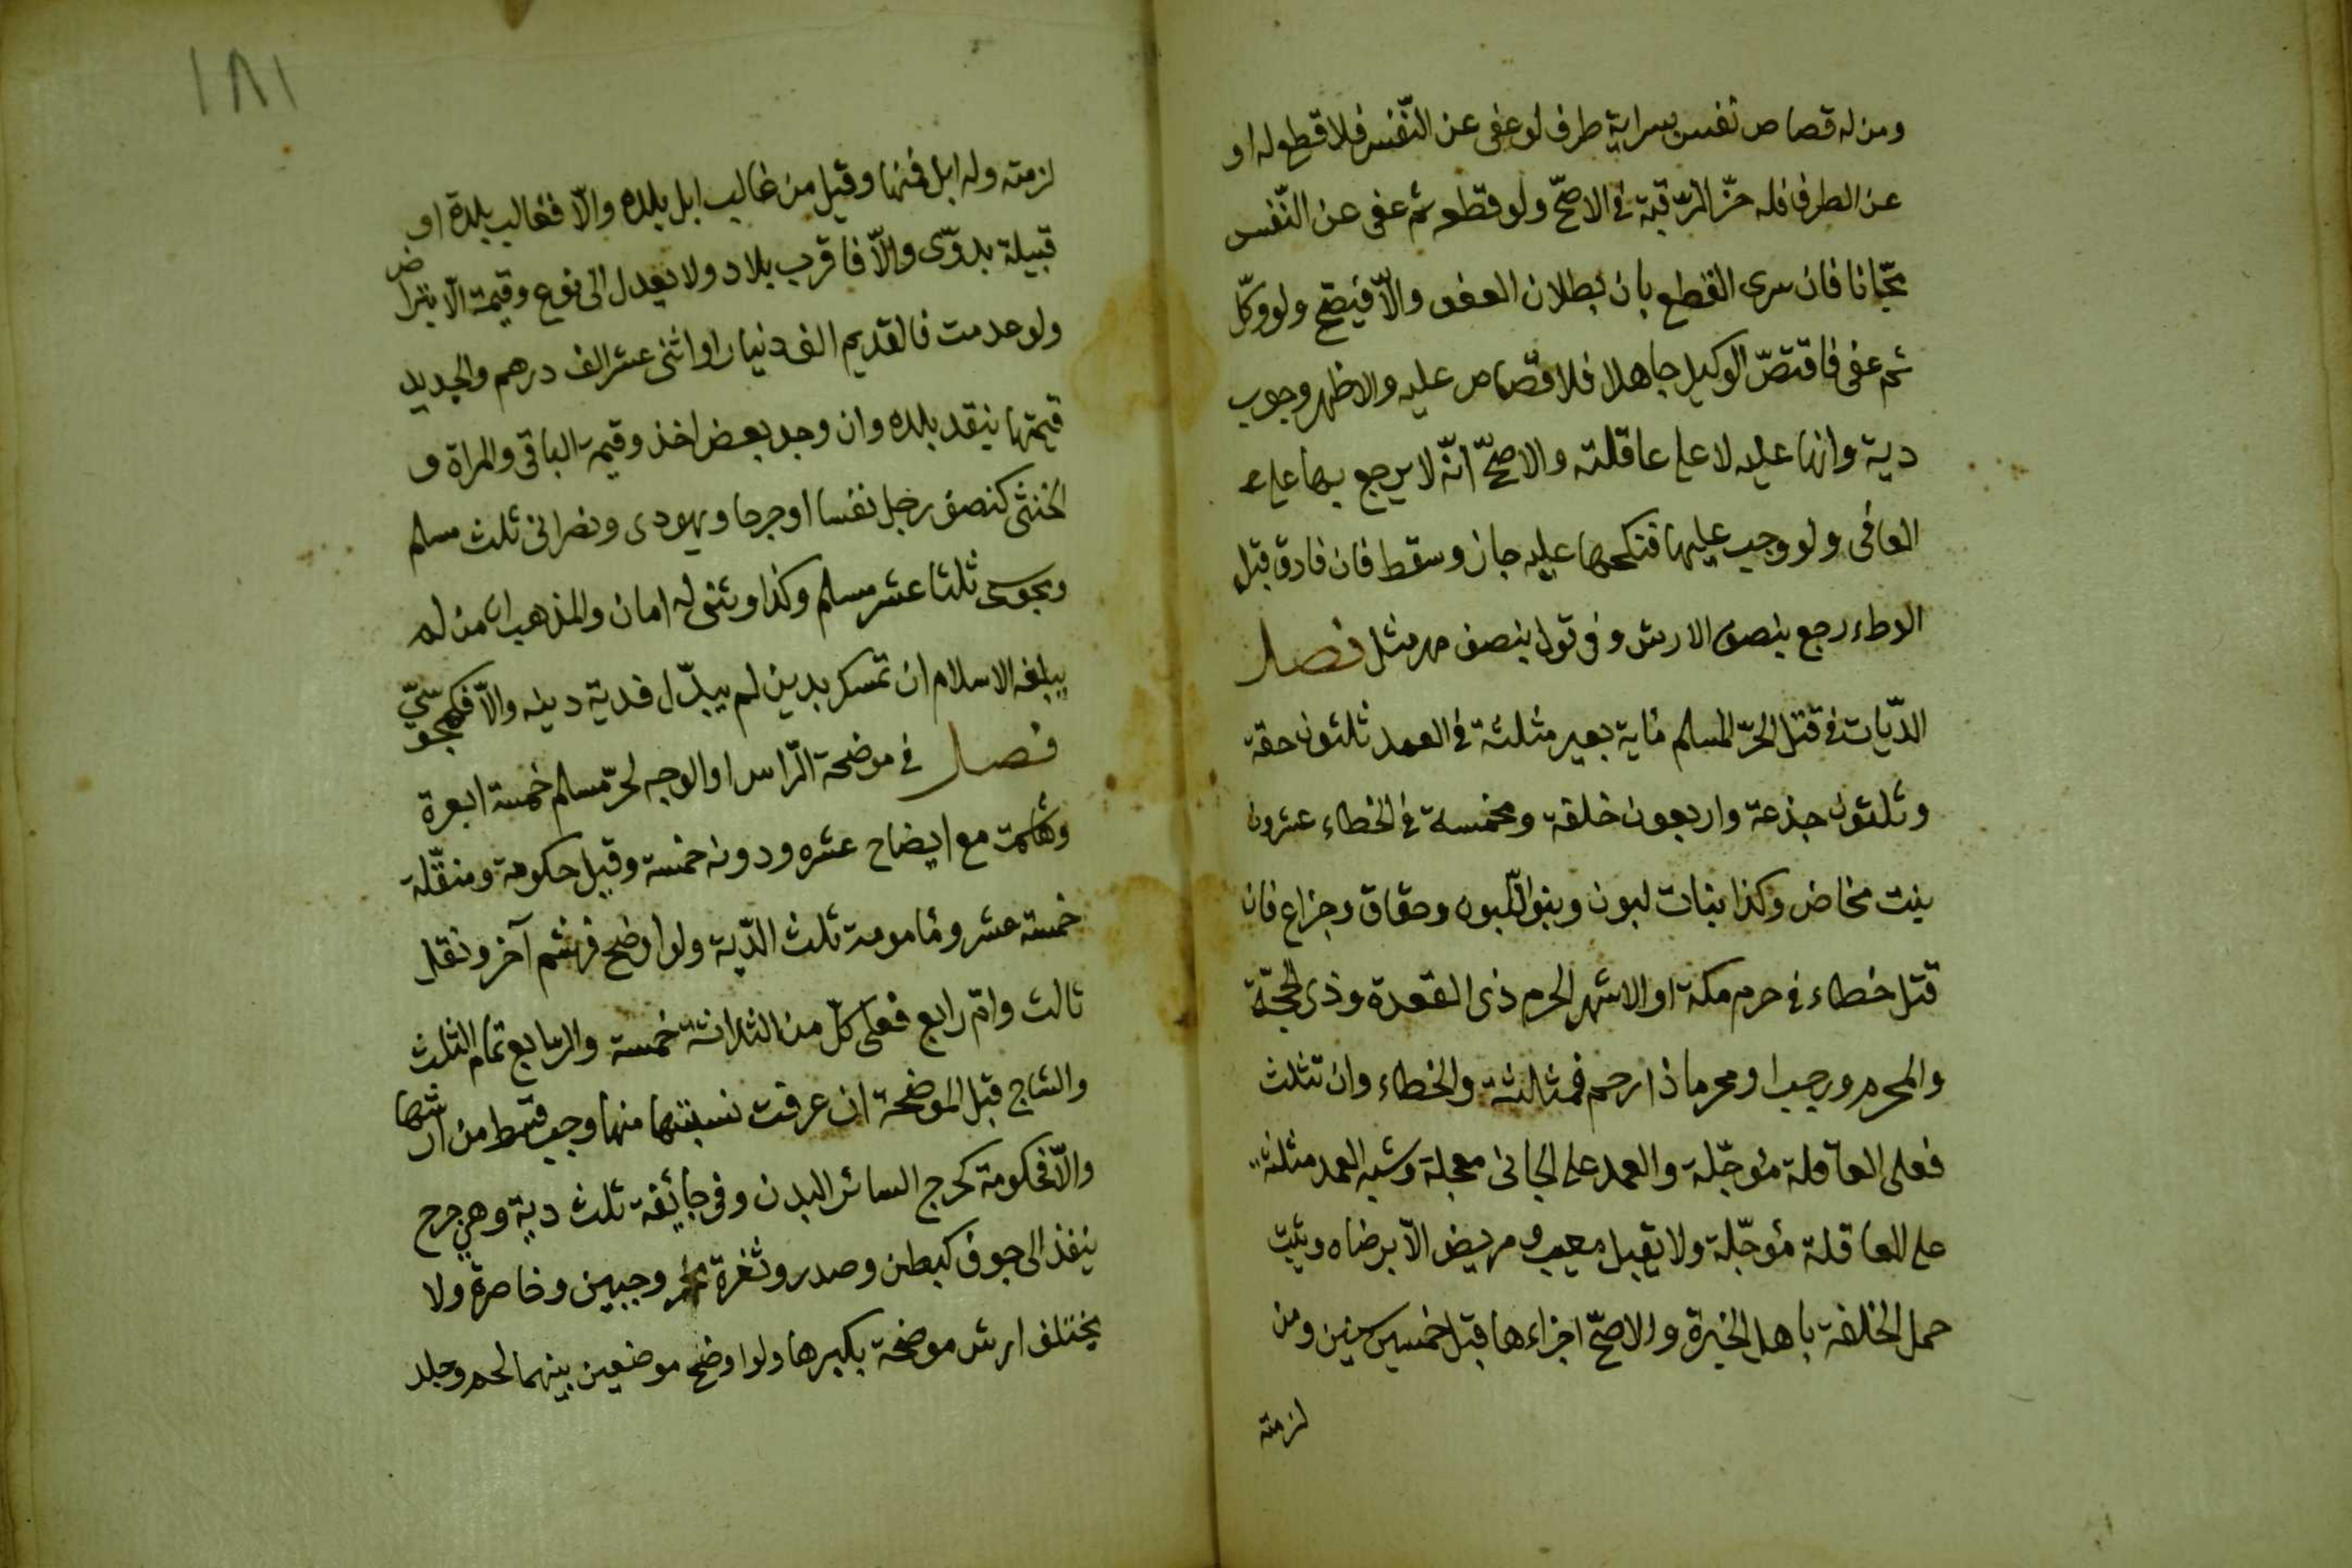 ومن له قصاص نفس بسراية طرف لو عفى عن النّفس فلا قطع له او
عن الطرف فله حزّ الرّقبة فى الاصحّ ولو قطعه ثم عفى عن النّفس
مجّانا فان سرى القطع بان بطلان العفو والّا فيصّح ولو وكّل
ثم عفى فاقتصّ الوكيل جاهلا فلا قصاص عليه والاظهر وجوب
دية وانها عليه لا على عاقلته والاصحّ انّه لا يرجع بها على
العافى ولو وجب عليها فنكحها عليه جاز وسقط فان فارق قبل
الوطاء رجع بنصف الارش وفى قول بنصف مهر مثل فصل
الدّيات فى قتل الحرّ المسلم مأية بعير مثلثة فى العمد ثلثون حقة
وثلثون جذعة واربعون خلفة ومخمسة فى الخطاء عشرون
بنت مخاض وكذا بنات لبون وبنو اللّبون وحقاق وجزاع فان
قتل خطاء فى حرم مكة او الاشهر الحرم ذى القعدة وذى الحجّة
والمحرم ورجب او محرما ذا رحم فمثلثة والخطاء وان تثلث
فعلى العاقلة مؤجّلة والعمد على الجانى معجلة وشبه العمد مثلثة
على العاقلة مؤجّلة ولا يقبل معيب ومريض الّا برضاه ويثبت
حمل الخلفة باهل الخبرة والاصحّ اجزاءها قبل خمس سنين ومن
لزمته
١٨١
لزمته وله ابل فمنها وقيل من غالب ابل بلده والّا فغالب بلدة او
قبيلة بدوّى والّا فاقرب بلاد ولا يعدل الى نوع وقيمة الّا بتراض
ولو عدمت فالقديم الف دنيار او اثنى عشر الف درهم والجديد
قيمتها بنقد بلده وان وجد بعض اخذ وقيمة الباقى والمراة و
الخنثى كنصف رجل نفسا او جرحا ويهودى ونصرانى ثلث مسلم
ومجوسى ثلثا عشر مسلم وكذا وثنى له امان والمذهب ان من لم
يبلغه الاسلام ان تمسك بدين لم يبدّل فدية دينه والّا فكمجوسّىّ
فصل فى موضحة الرّاس او الوجه لحرّ مسلم خمسة ابعرة
وهاشمة مع ايضاح عشره ودونه خمسة وقيل حكومة ومنقّلة
خمسة عشر ومأمومة ثلث الدّية ولو اوضح فهشم آخر ونقل
ثالث وامّ رابع فعلى كلّ من الثلاثة خمسة والرّابع تمام الثلث
والشجاج قبل الموضحة ان عرفت نسبتها منها وجب قسط من ارشها
والّا فحكومة كجرح السائر البدن وفى جائفة ثلث دية وهى جرح
ينفذ الى جوف كبطن وصدر وثغرة نحر وجبين وخاصرة ولا
يختلف ارش موضحة بكبرها ولو اوضح موضعين بينهما لحم وجلد